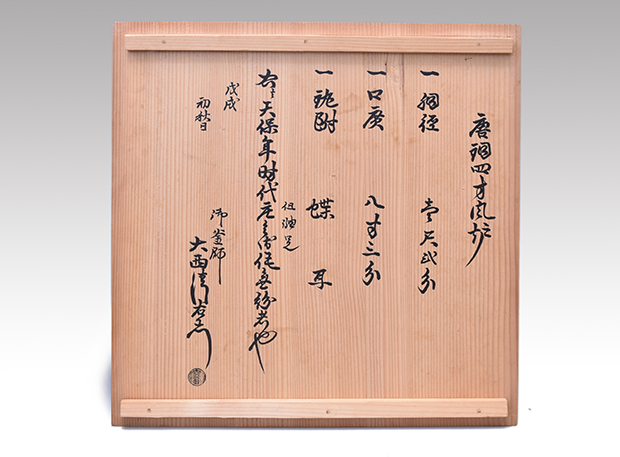 唐銅四方風炉
一 胴径 壹尺弐分
一 口廣 八寸三分
一 鐶附 蝶耳
但 油足
右ハ天保年時代
無紛者也
戊戌
初秋日
御釜師
大西清右衛門